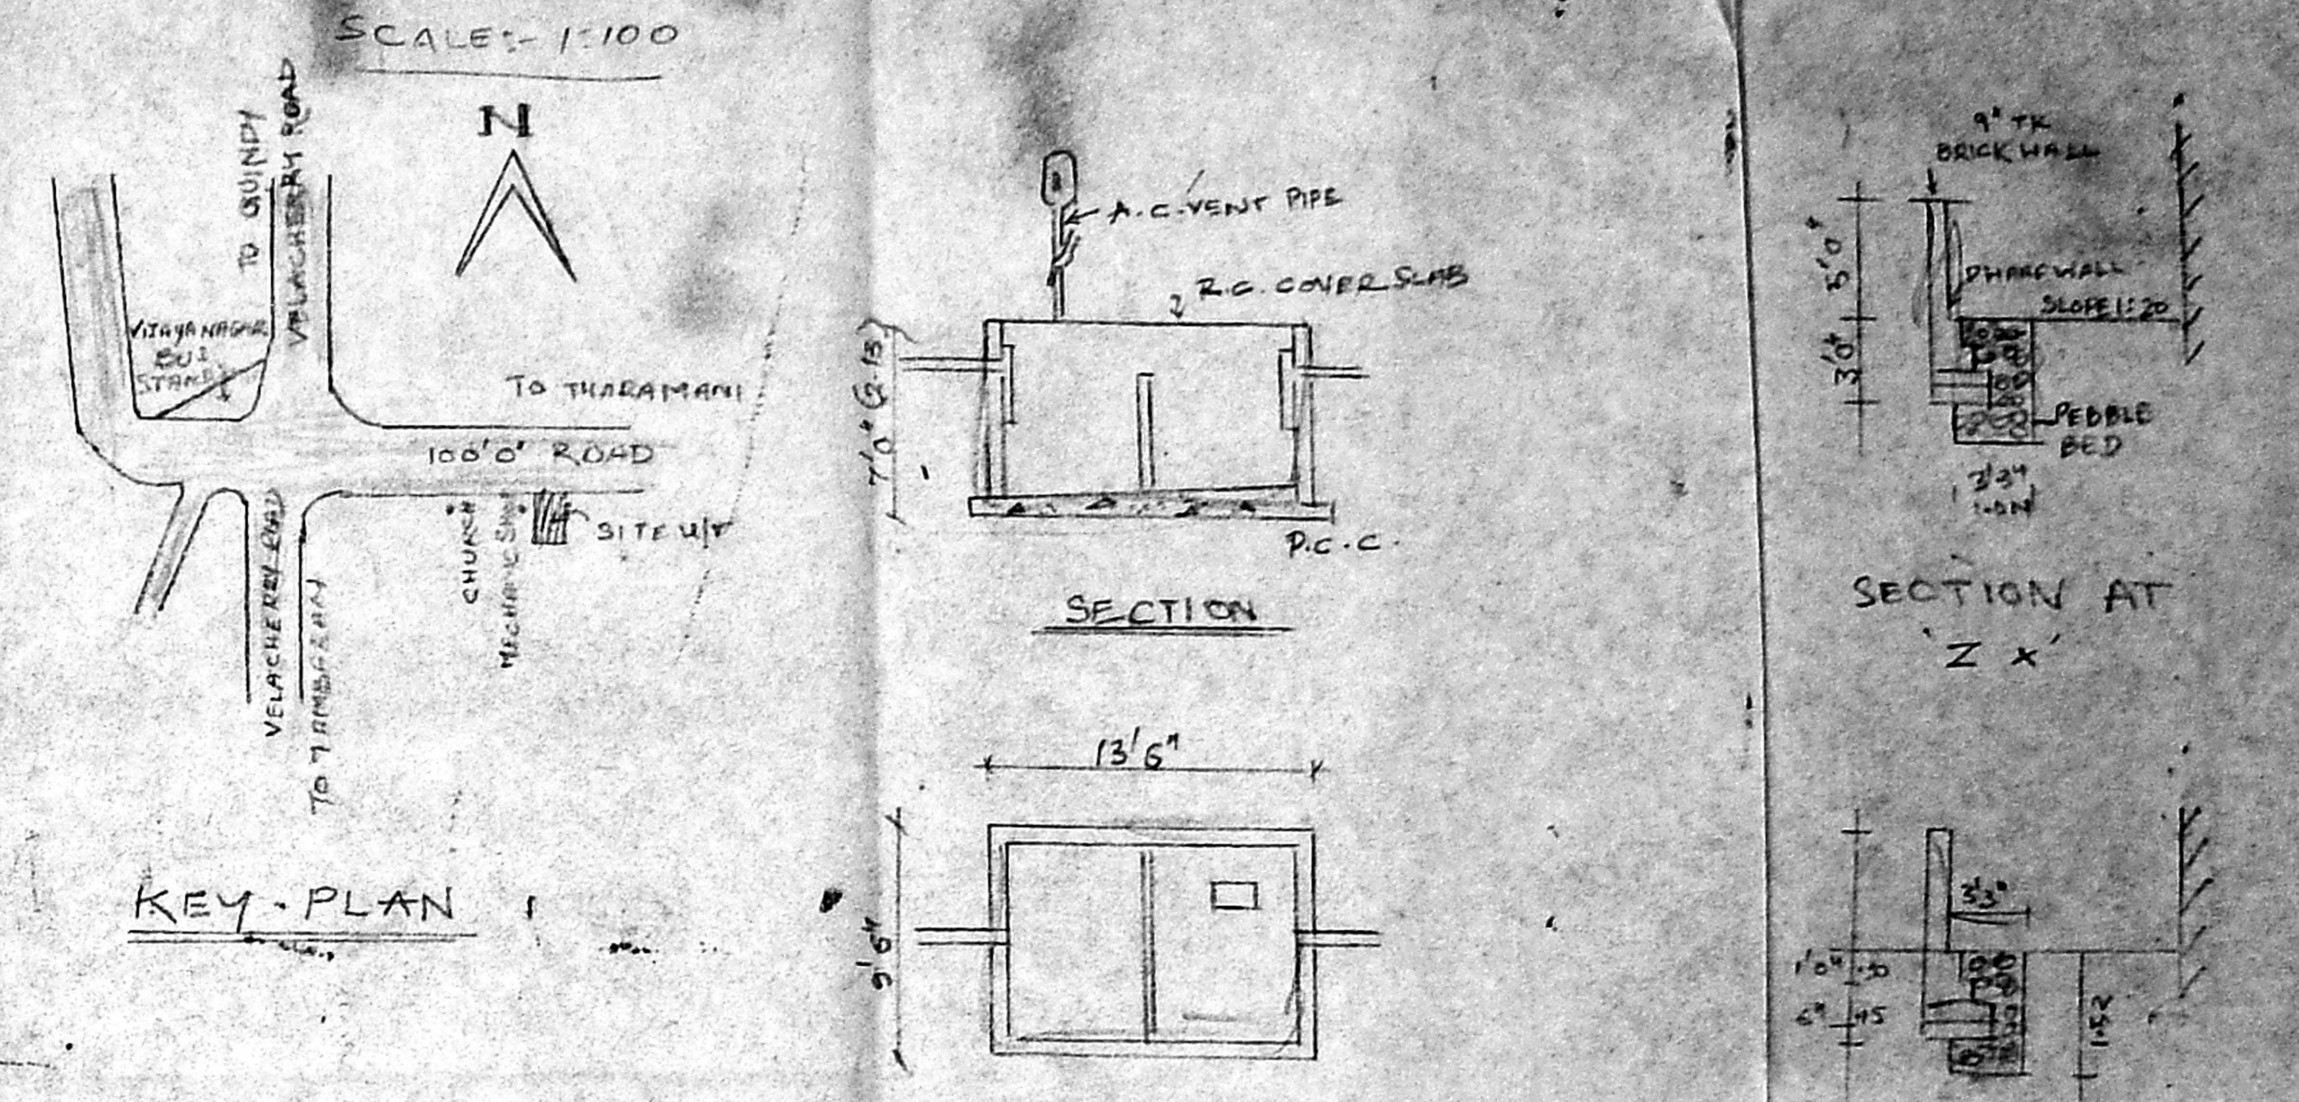 SCALE:- 1:100
N
TO GUINDY
VELACHERRY ROAD
VIJAYA NAGAR
BUS
STAND
TO THARAMANI
100'0" ROAD
CHURCH
SITE U/R
VELACHERRY ROAD
TO TAMBARAM
KEY-PLAN
A.C. VENT PIPE
R.C. COVER SLAB
7'0" (2.13)
P.C.C.
SECTION
13'6"
9'6"
9" TK
BRICK WALL
5'0"
DWARF WALL
SLOPE 1:20
3'0"
PEBBLE
BED
3'3"
SECTION AT
'Z X'
3'3"
1'0" .30
6" .15
1.52